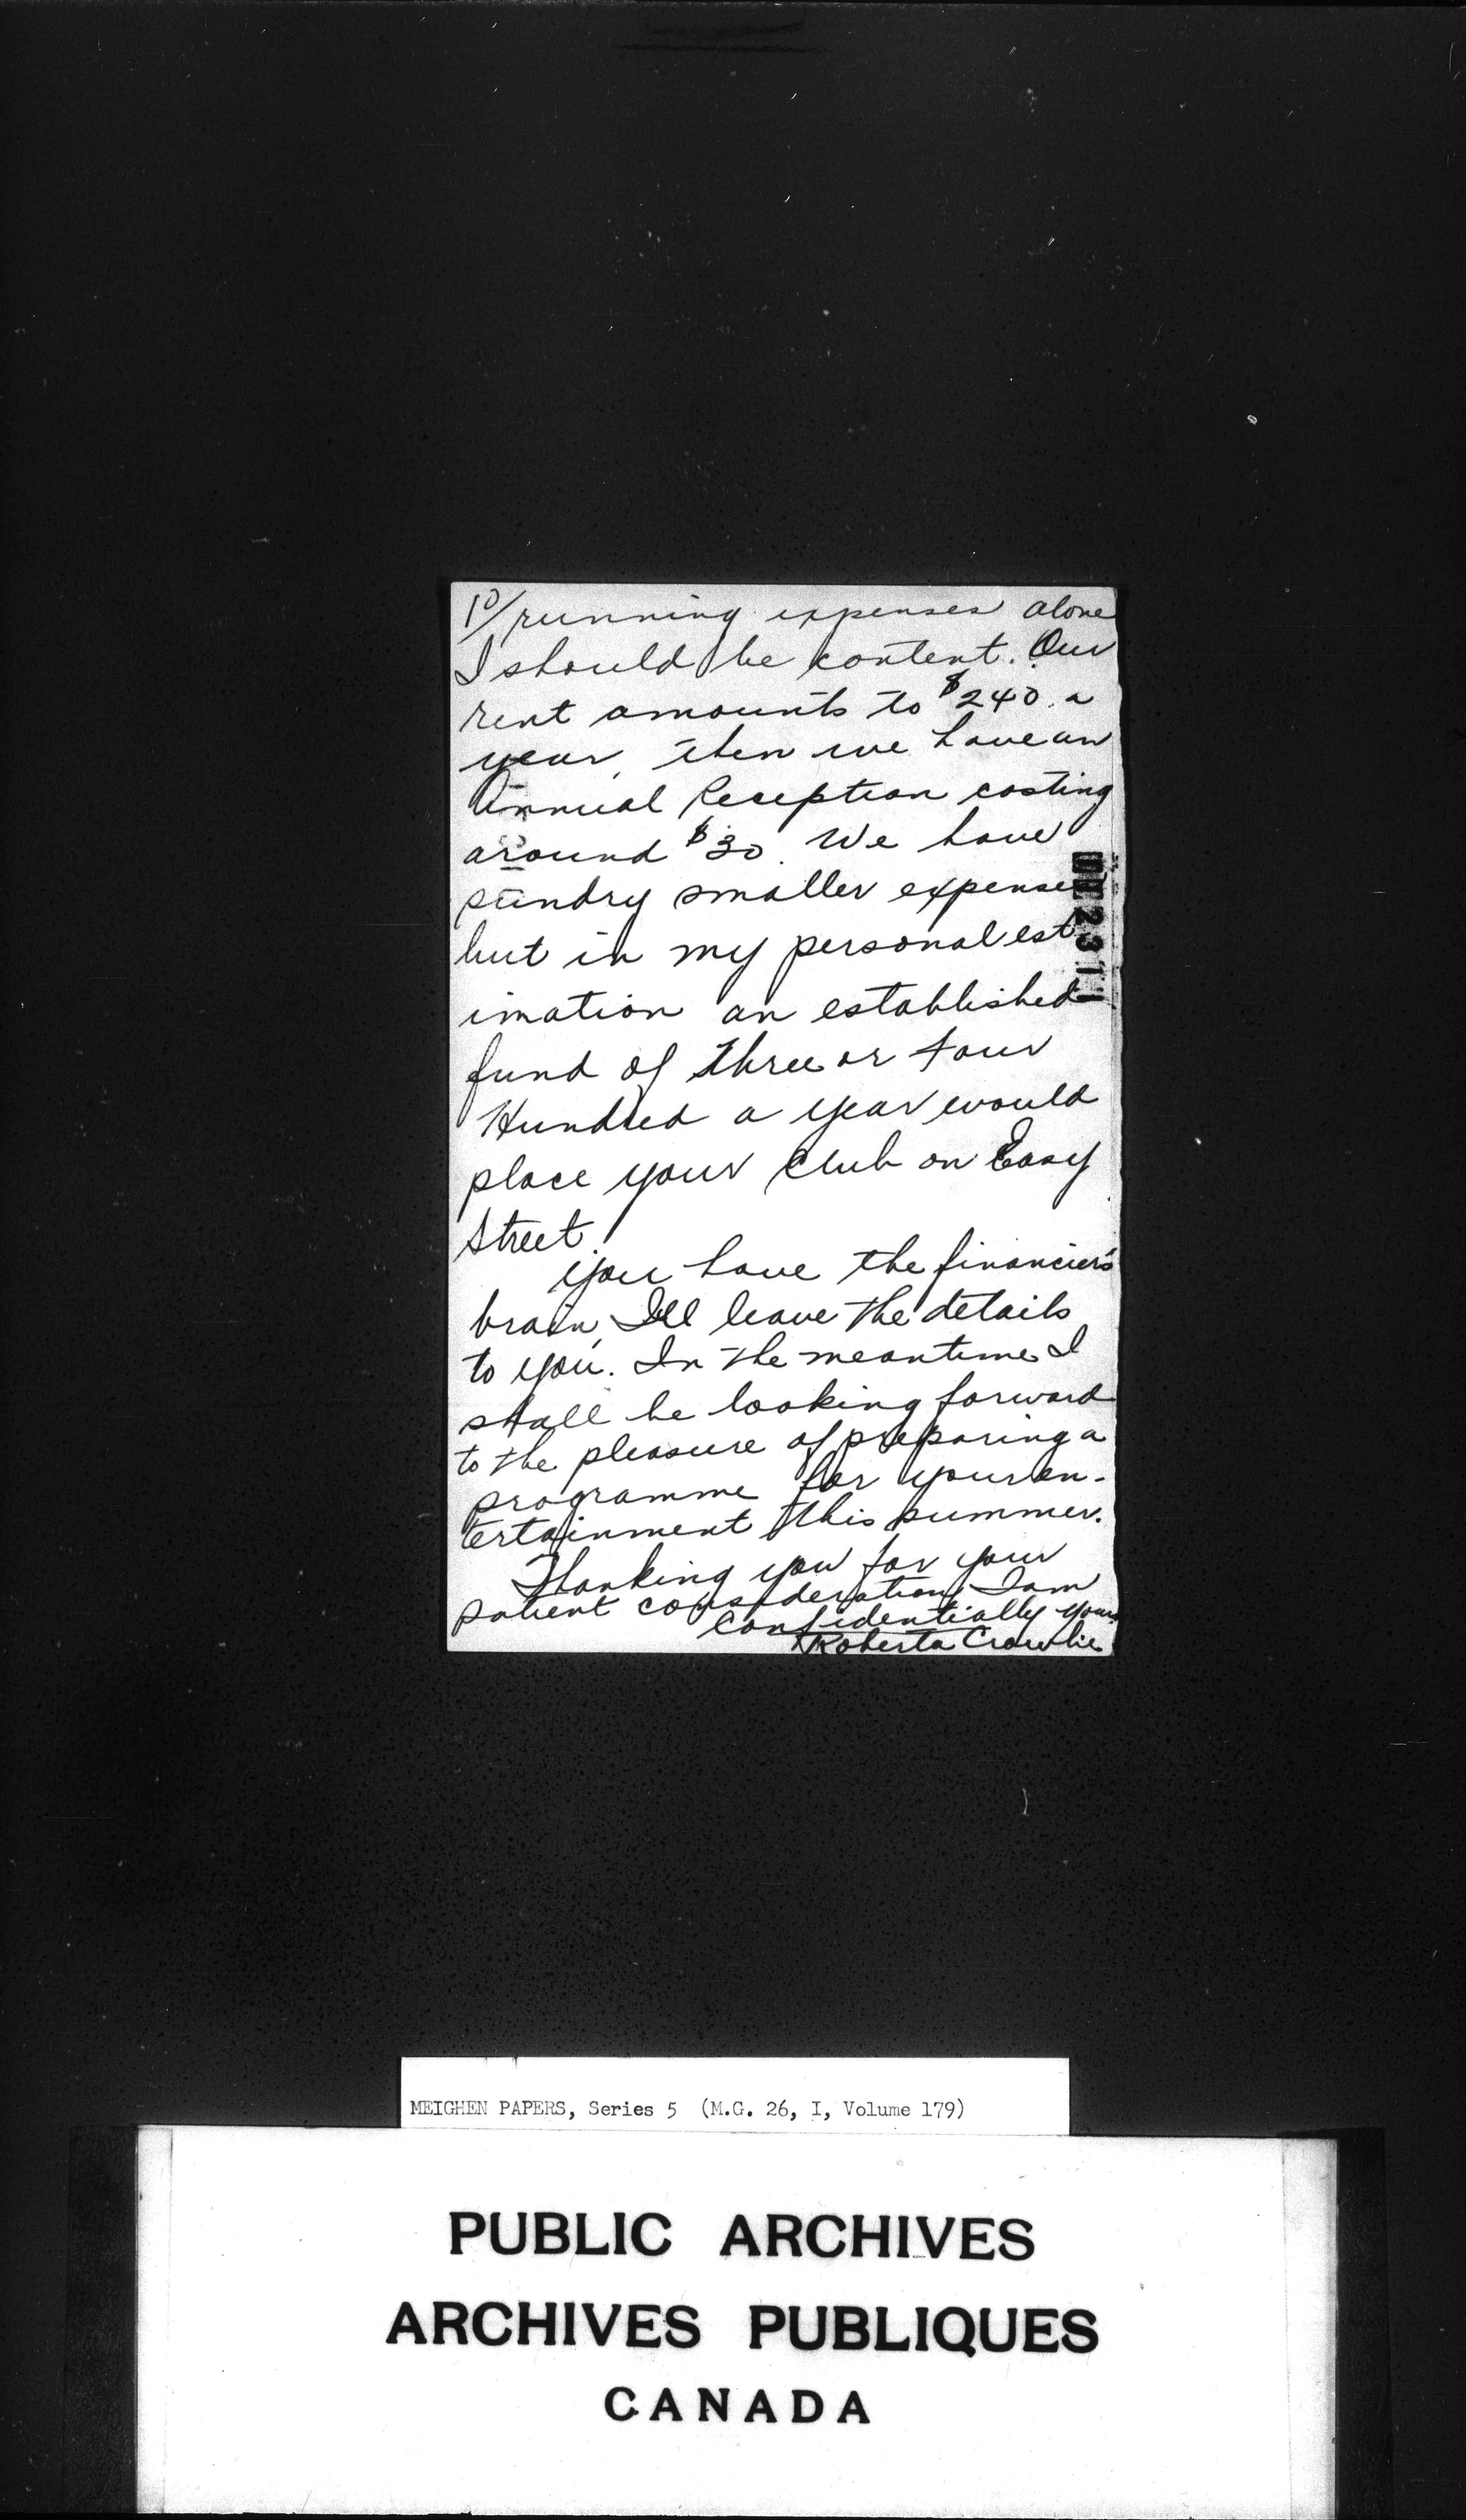 10/ running expenses alone
I should be content. Our
rent amounts to $240. a
year, then we have an
Annual Reception costing
around $30. We have
sundry smaller expenses
but in my personal est
imation an established
fund of three or four
Hundred a year would
place your Club on Easy
Street.
You have the financier's
brain, I'll leave the details
to you. In the meantime I
shall be looking forward
to the pleasure of preparing a
programme for your en-
tertainment this summer.
Thanking you for your
patient consideration, I am
Confidentially yours
Roberta
MEIGHEN PAPERS, Series 5 (M.G. 26, I, Volume 179)
PUBLIC ARCHIVES
ARCHIVES PUBLIQUES
CANADA